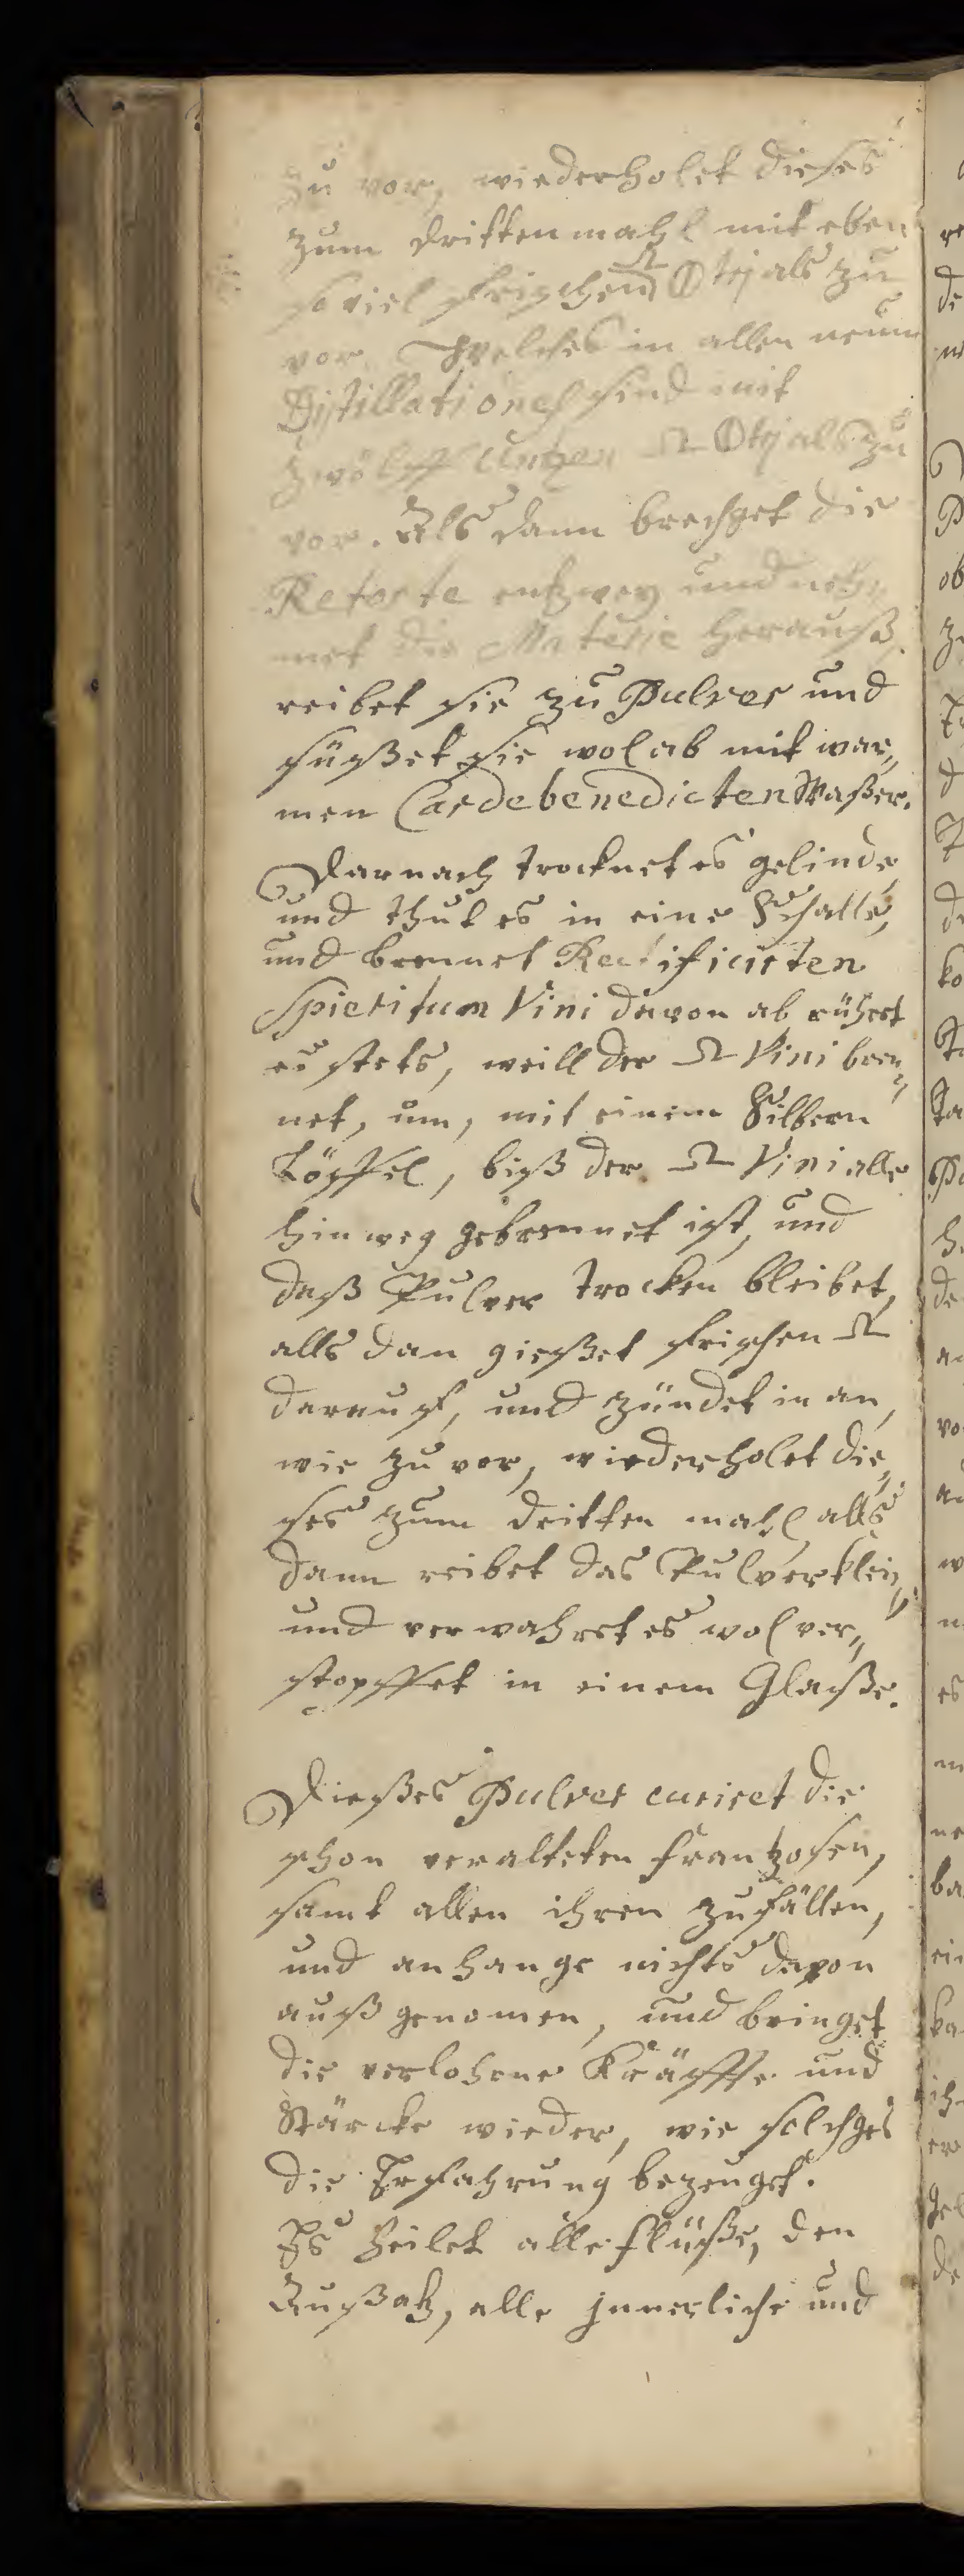 zu vor, wiederholet dieses
zum drittenmahl mit eben
so viel frischen 🜔 Otrj als zu
vor. Welches in allen neun
Distillationes sind mit
zwölff Untzen Ω Otrj als zu
vor. Als dann brechet die
Retorte entzwey und neh,
met die Materie herauß,
reibet sie zu Pulver und
süßet sie wol ab mit war,,
men Cardebenedicten Waßer.
Darnach trocknet es gelinde,
und thut es in eine Schalle,
und brennet Rectificirten
Spieritum Vini davon ab rühret
es stets, weill der Ω Vini bren,,
net, um, mit einem Silbern
Löffel, biß der Ω Vini alle
hinweg gebrennet ist, und
daß Pulver trocken bleibet,
alls dan gießet frischen Ω
darauf, und zündet in an,
wie zu vor, wiederholet die,,
ses zum dritten mahl alls
dann reibet das Pulver klein,,
und verwahret es wol ver,,
stopffet in einem Glaße.
Dießes Pulver curiret die
schon veralteten frantzosen,
samt allen ihren zufällen,
und anhange nichts davon
außgenomen, und bringet
die verlohrne Kräffte und
Stärcke wieder, wie solches
die Erfahrung bezeuget.
Es heilet alle flüße, den
Außatz, alle jnnerliche und